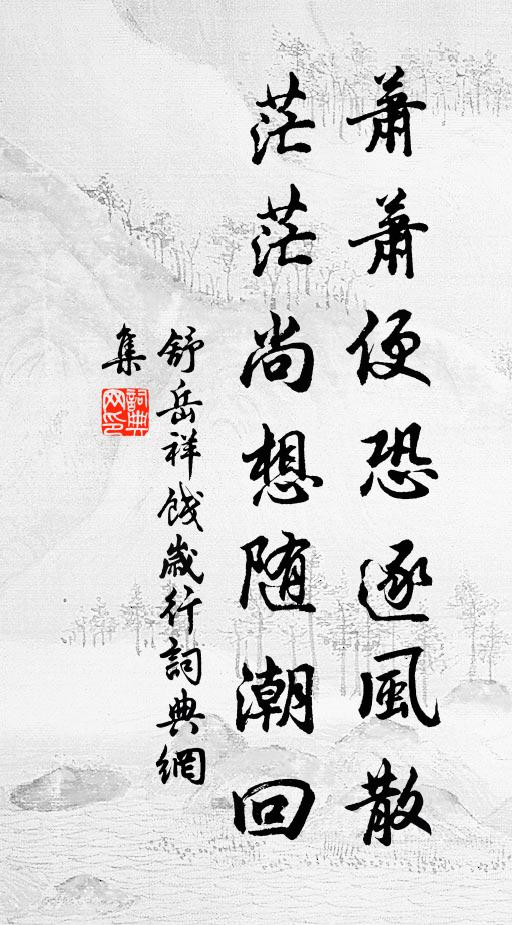 蕭蕭便恐逐風散
茫茫尚想随潮回
舒岳祥餞歲行詞典網
集
詞典網印